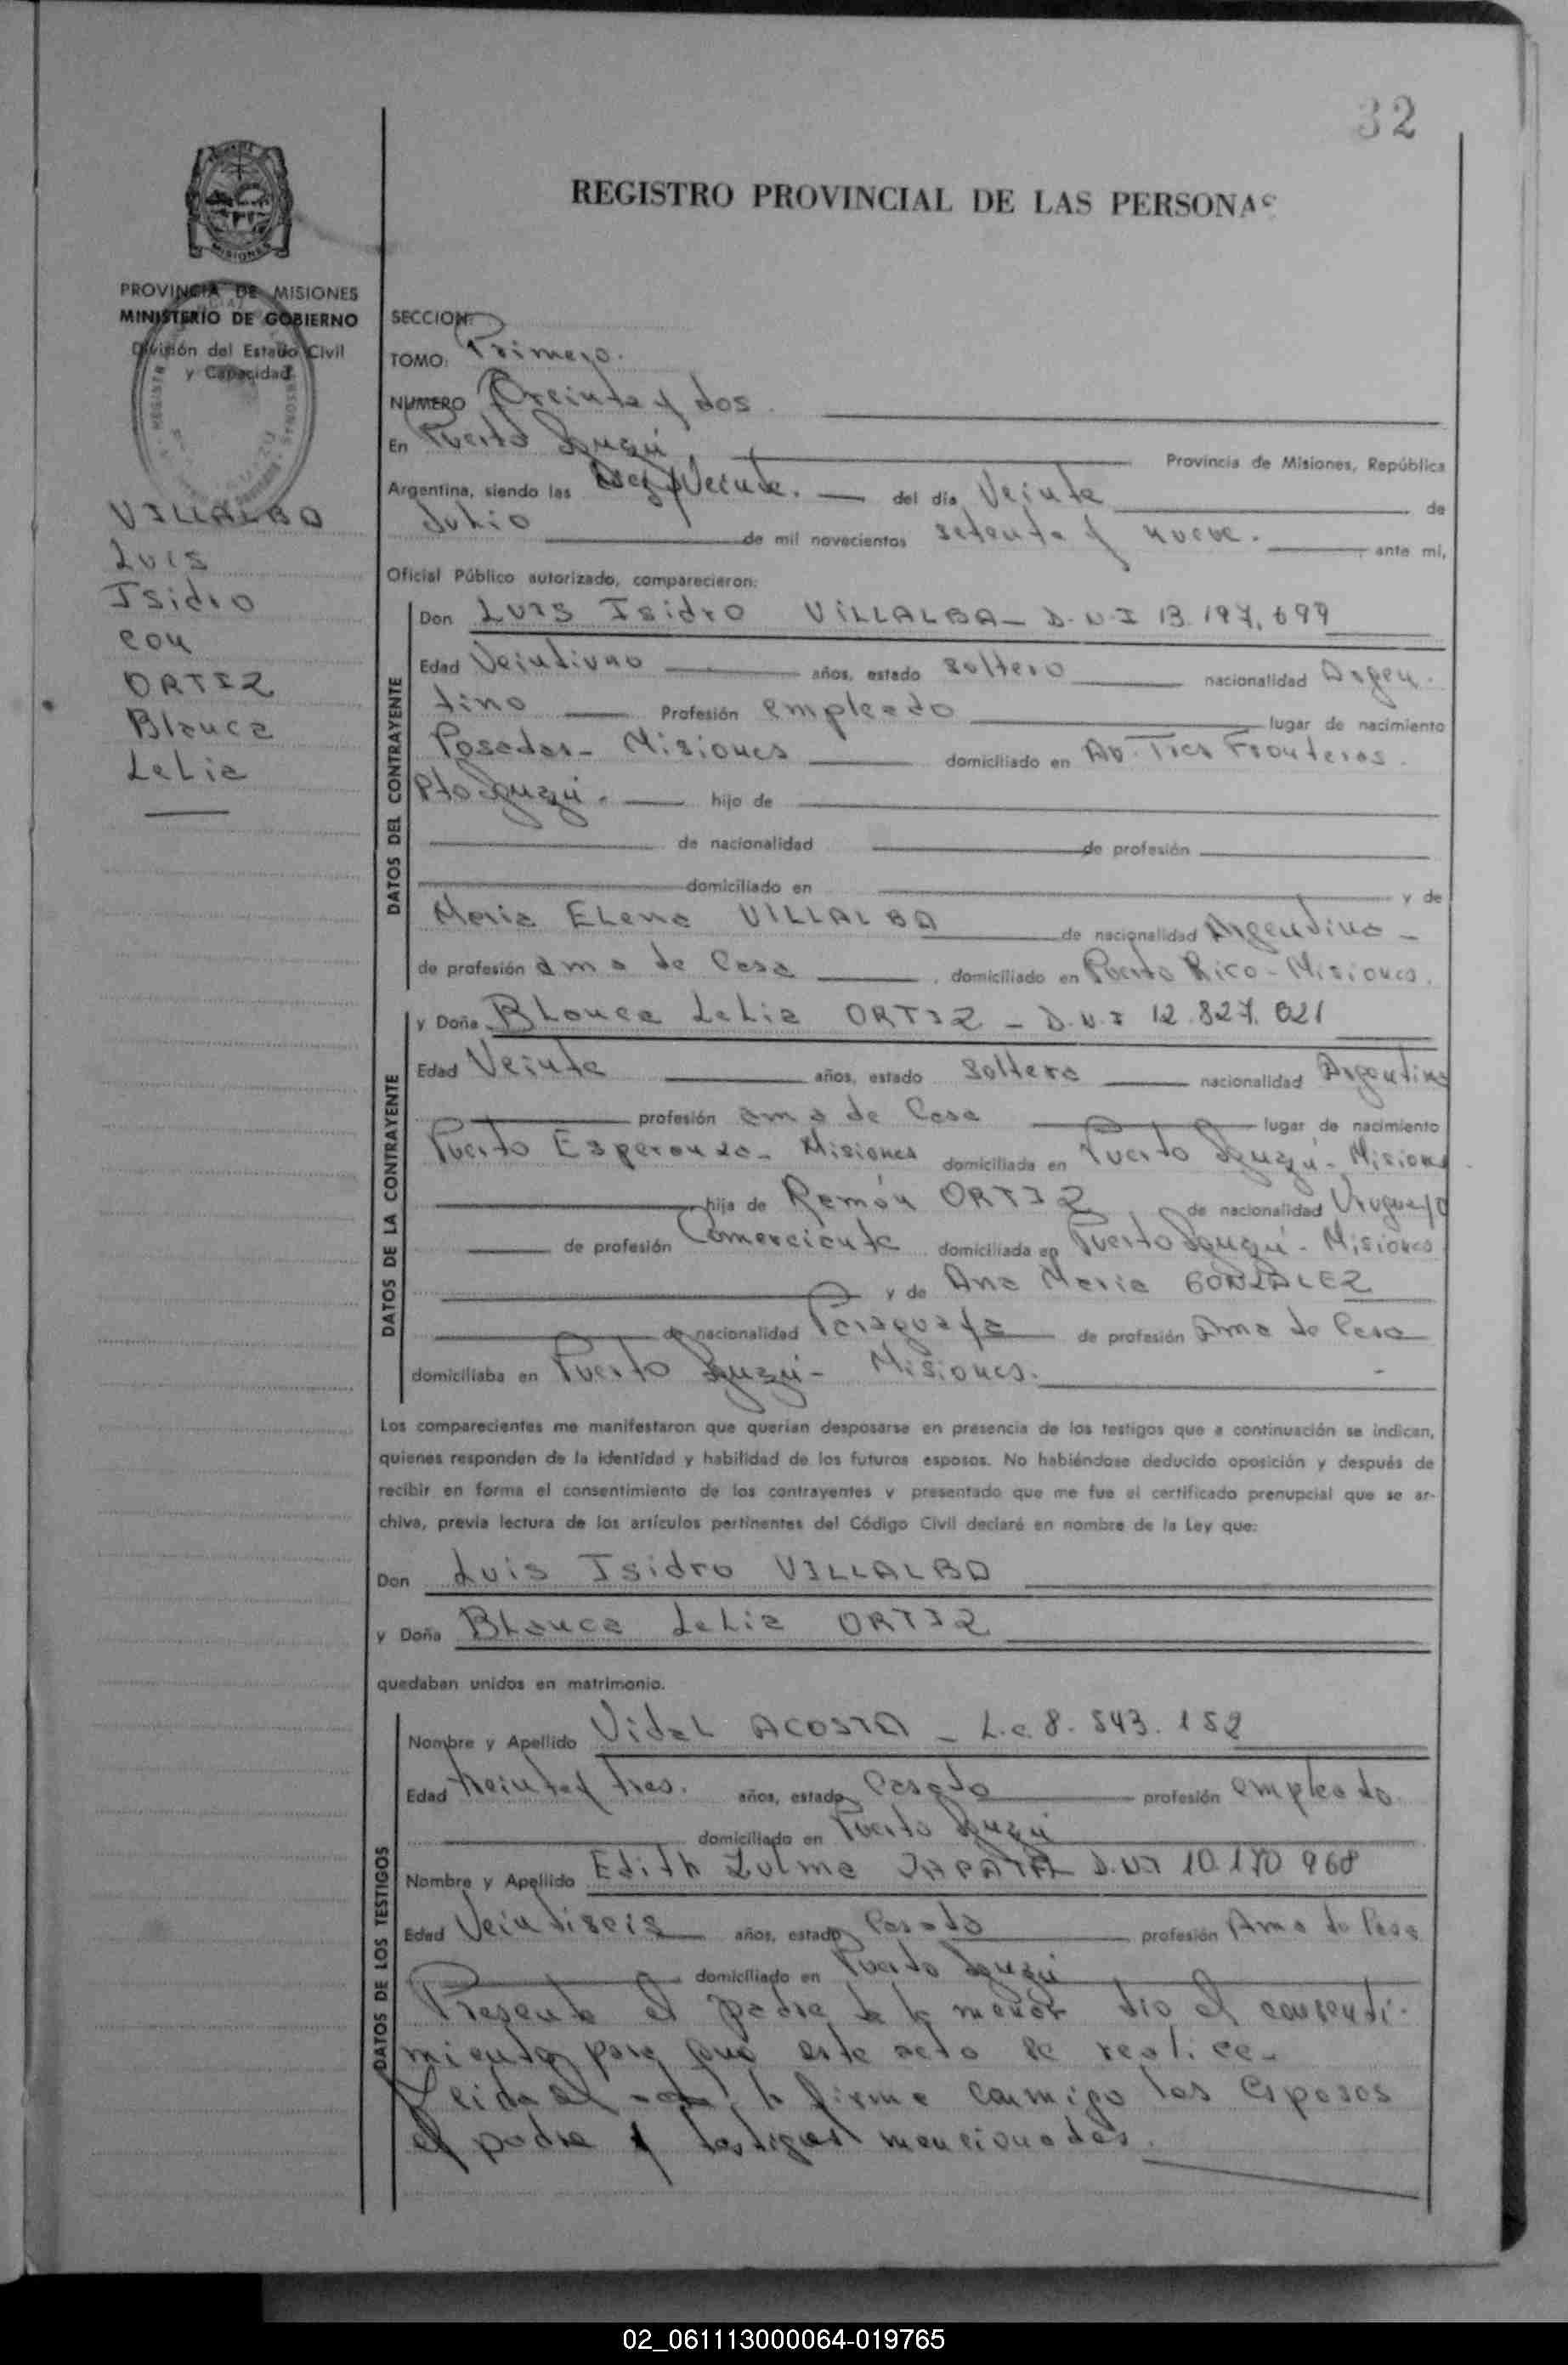 32
REGISTRO PROVINCIAL DE LAS PERSONAS
MISIONES
PROVINCIA DE MISIONES
MINISTERIO DE GOBIERNO
División del Estado Civil
y Capacidad
VILLALBA
Luis
Isidro
con
ORTIZ
Blanca
Lelia
SECCION:
TOMO: Primero.
NUMERO Treinta y dos.
En Puerto Iguazú Provincia de Misiones, República
Argentina, siendo las diez y Veinte. del día Veinte de
Julio de mil novecientos setenta y nueve. ante mi,
Oficial Público autorizado, comparecieron:
DATOS DEL CONTRAYENTE
Don LUIS Isidro VILLALBA - D.N.I 13.197.699
Edad Veintiuno años, estado soltero nacionalidad Argen-
tino Profesión empleado lugar de nacimiento
Posadas - Misiones domiciliado en Av. Tres Fronteras.
Pto Iguazú. hijo de
de nacionalidad de profesión
domiciliado en y de
Maria Elena VILLALBA de nacionalidad Argentina -
de profesión ama de Casa domiciliado en Puerto Rico - Misiones.
DATOS DE LA CONTRAYENTE
y Doña Blanca Lelia ORTIZ - D.N.I 12.827.021
Edad Veinte años, estado soltera nacionalidad Argentina
profesión ama de Casa lugar de nacimiento
Puerto Esperanza - Misiones domiciliada en Puerto Iguazú - Misiones
hija de Ramón ORTIZ de nacionalidad Uruguayo
de profesión Comerciante domiciliada en Puerto Iguazú - Misiones
y de Ana Maria GONZALEZ
de nacionalidad Paraguaya de profesión Ama de Casa
domiciliaba en Puerto Iguazú - Misiones.
Los comparecientes me manifestaron que querían desposarse en presencia de los testigos que a continuación se indican,
quienes responden de la identidad y habilidad de los futuros esposos. No habiéndose deducido oposición y después de
recibir en forma el consentimiento de los contrayentes y presentado que me fue el certificado prenupcial que se ar-
chiva, previa lectura de los artículos pertinentes del Código Civil declaré en nombre de la Ley que:
Don Luis Isidro VILLALBA
y Doña Blanca Lelia ORTIZ
quedaban unidos en matrimonio.
DATOS DE LOS TESTIGOS
Nombre y Apellido Vidal ACOSTA - L.e. 8.543.152
Edad treinta y tres. años, estado Casado profesión empleado
domiciliado en Puerto Iguazú
Nombre y Apellido Edith Zulma ZAPATA D.NI 10.170 968
Edad Veintiseis años, estado Casado profesión Ama de Casa
domiciliado en Puerto Iguazú
Presente el padre de la menor dio el consenti-
miento para que este acto se realice -
Leida el acta, la firma conmigo los esposos
el padre y testigos mencionados.
02_061113000064-019765